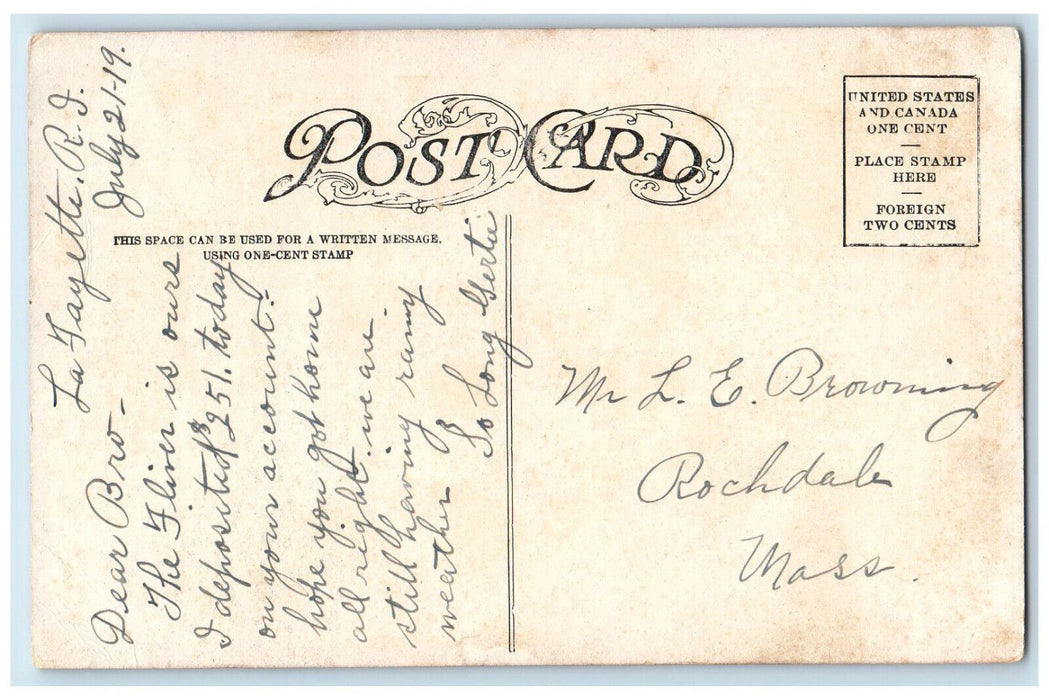 POST CARD
THIS SPACE CAN BE USED FOR A WRITTEN MESSAGE,
USING ONE-CENT STAMP
UNITED STATES
AND CANADA
ONE CENT
PLACE STAMP
HERE
FOREIGN
TWO CENTS
La Fayette. R.I.
July 21-19.
Dear Bro-
The Fliver is ours
I deposited $251. today
on your account.
hope you got home
all right. we are
still having rainy
weather
So Long Gertie
Mr L. E. Browning
Rochdale
Mass.